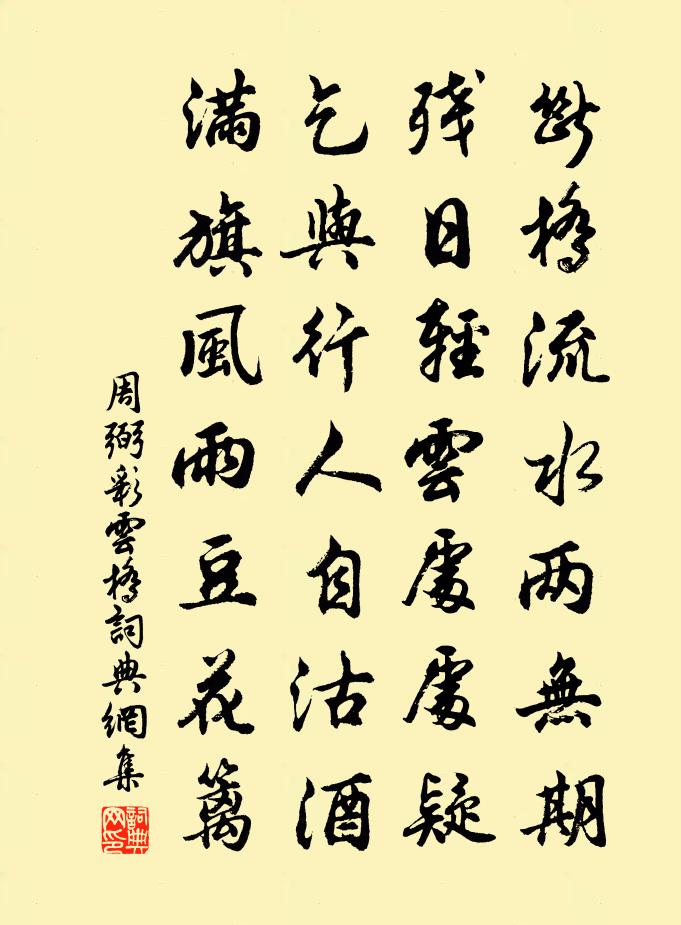 斷橋流水两無期
残日輕雲處處疑
乞與行人自沽酒
滿旗風雨豆花籬
周弼彩雲橋詞典網集
詞典网印